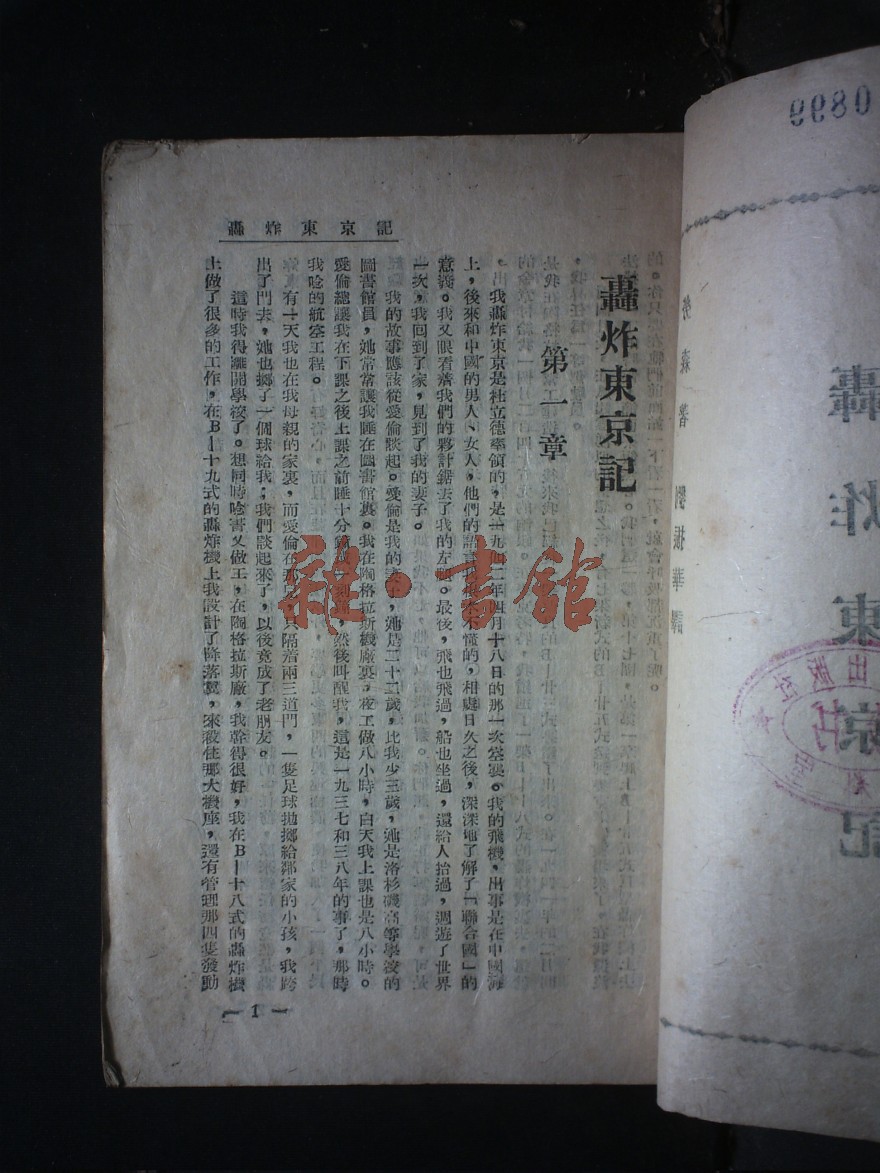 轟炸東京記
轟炸東京記
第一章
我轟炸東京是杜立德率領的,是一九四二年四月十八日的那一次空襲。我的飛機,出事是在中國海
上,後來和中國的男人、女人,他們的語言我根本不懂的,相處日久之後,深深地了解了「聯合國」的
意義。我又眼看着我們的夥計鋸去了我的左腿。最後,飛也飛過,船也坐過,還給人抬過,週遊了世界
一次,我回到了家,見到了我的妻子。
我的故事應該從愛倫談起。愛倫是我的妻子,她是二十三歲,比我少三歲,她是洛杉磯高等學校的
圖書館員,她常常讓我睡在圖書館裏。我在陶格拉斯機廠裏,夜工做八小時,白天我上課也是八小時。
愛倫總讓我在下課之後上課之前睡十分鐘或一刻鐘,然後叫醒我,這是一九三七和三八年的事了,那時
我唸的航空工程。
有一天我也在我母親的家裏,而愛倫在那兒,只隔着兩三道門,一隻足球拋擲給鄰家的小孩,我跨
出了門去,她也擲了一個球給我;我們談起來了,以後竟成了老朋友。
這時我得離開學校了。想同時唸書又做工,在陶格拉斯廠,我幹得很好,我在B—十八式的轟炸機
上做了很多的工作,在B—十九式的轟炸機上我設計了降落翼,來裝住那大機座,還有管理那四隻發動
— 1 —
雜·書館
0899
轟炸東京記
勞森著 劉振華譯
出版社